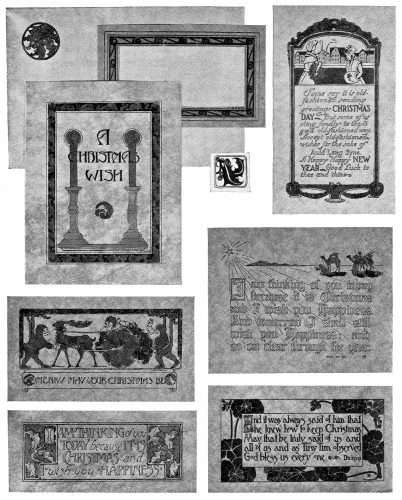 A
CHRISTMAS
WISH
Some say it is old-
fashioned sending
greetings CHRISTMAS
DAY— But some of us
cling fondly to the
good old fashioned way
Accept old fashioned
wishes for the sake of
Auld Lang Syne.
A Happy Happy NEW
YEAR— Good Luck to
thee and thine
I am thinking of you today
because it is Christmas
and I wish you Happiness
And tomorrow I shall still
wish you Happiness and
so on clear through the year.
MERRY MAY YOUR CHRISTMAS BE
I AM THINKING of you
TODAY because IT IS
CHRISTMAS and
I wish you HAPPINESS
And it was always said of him that
he knew how to keep Christmas
May that be truly said of us and
all of us and as Tiny Tim observed
God bless us every one. Dickens